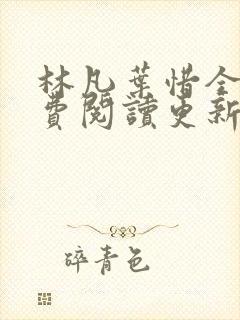 林凡葉惜全
費閱讀更新
碎青色